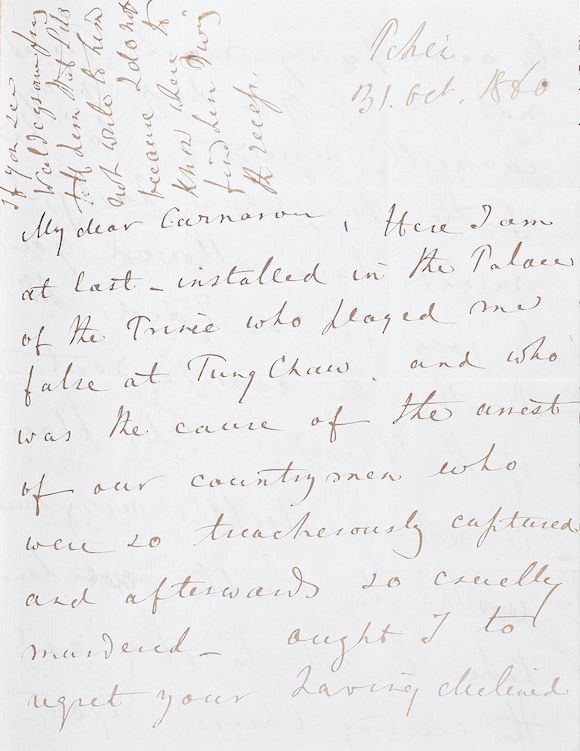 Pekin
31. Oct. 1860
My dear Carnarvon, Here I am
at last - installed in the Palace
of the Prince who played me
false at Tung Chaw. and who
was the cause of the arrest
of our countrymen who
were so treacherously captured
and afterwards so cruelly
murdered - ought I to
regret your having declined
If you see
tell him that I do
not write to him
because I do not
know where to
find him